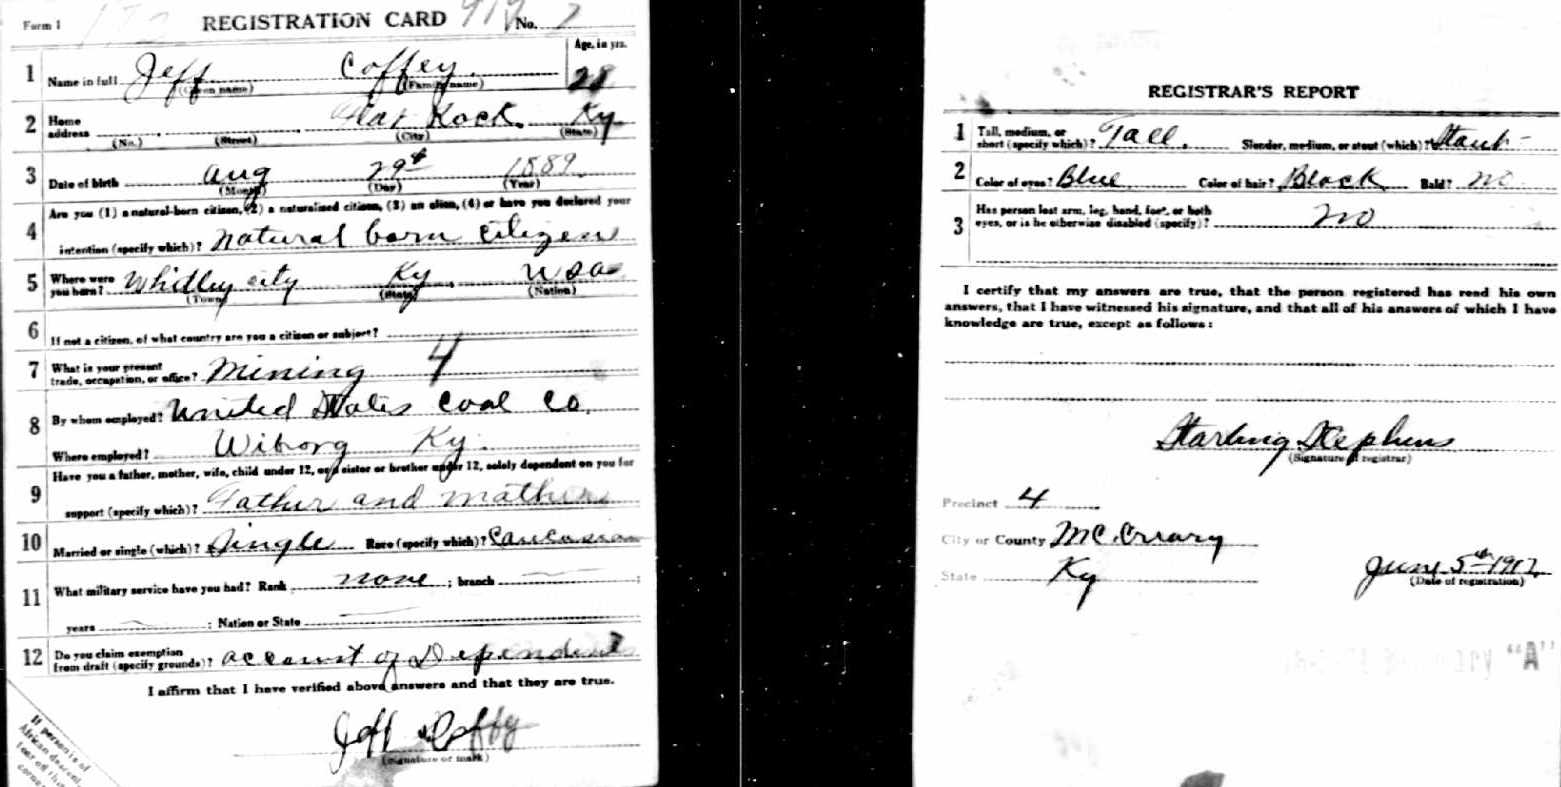 Form 1 172 REGISTRATION CARD 919 No. 7
1 Name in full Jeff Coffey. Age, in yrs. 28
(Given name) (Family name)
2 Home address Flat Rock Ky
(No.) (Street) (City) (State)
3 Date of birth Aug 29th 1889
(Month) (Day) (Year)
Are you (1) a natural-born citizen, (2) a naturalized citizen, (3) an alien, (4) or have you declared your
4 intention (specify which)? natural born citizen
5 Where were you born? Whitley city Ky. USA
(Town) (State) (Nation)
6 If not a citizen, of what country are you a citizen or subject?
7 What is your present trade, occupation, or office? Mining 4
8 By whom employed? United States Coal Co.
Where employed? Wiborg Ky.
Have you a father, mother, wife, child under 12, or a sister or brother under 12, solely dependent on you for
9 support (specify which)? Father and mother
10 Married or single (which)? Single Race (specify which)? Caucasian
11 What military service have you had? Rank none ; branch ;
years ; Nation or State
12 Do you claim exemption from draft (specify grounds)? account of Dependents
I affirm that I have verified above answers and that they are true.
Jeff Coffy
(Signature or mark)
If person is of
African descent,
tear off this
corner
REGISTRAR'S REPORT
1 Tall, medium, or short (specify which)? Tall. Slender, medium, or stout (which)? Stout
2 Color of eyes? Blue Color of hair? Black Bald? no
3 Has person lost arm, leg, hand, foot, or both eyes, or is he otherwise disabled (specify)? no
I certify that my answers are true, that the person registered has read his own
answers, that I have witnessed his signature, and that all of his answers of which I have
knowledge are true, except as follows:
Starling Stephens
(Signature of registrar)
Precinct 4
City or County McCreary
State Ky June 5th 1917
(Date of registration)
"A"